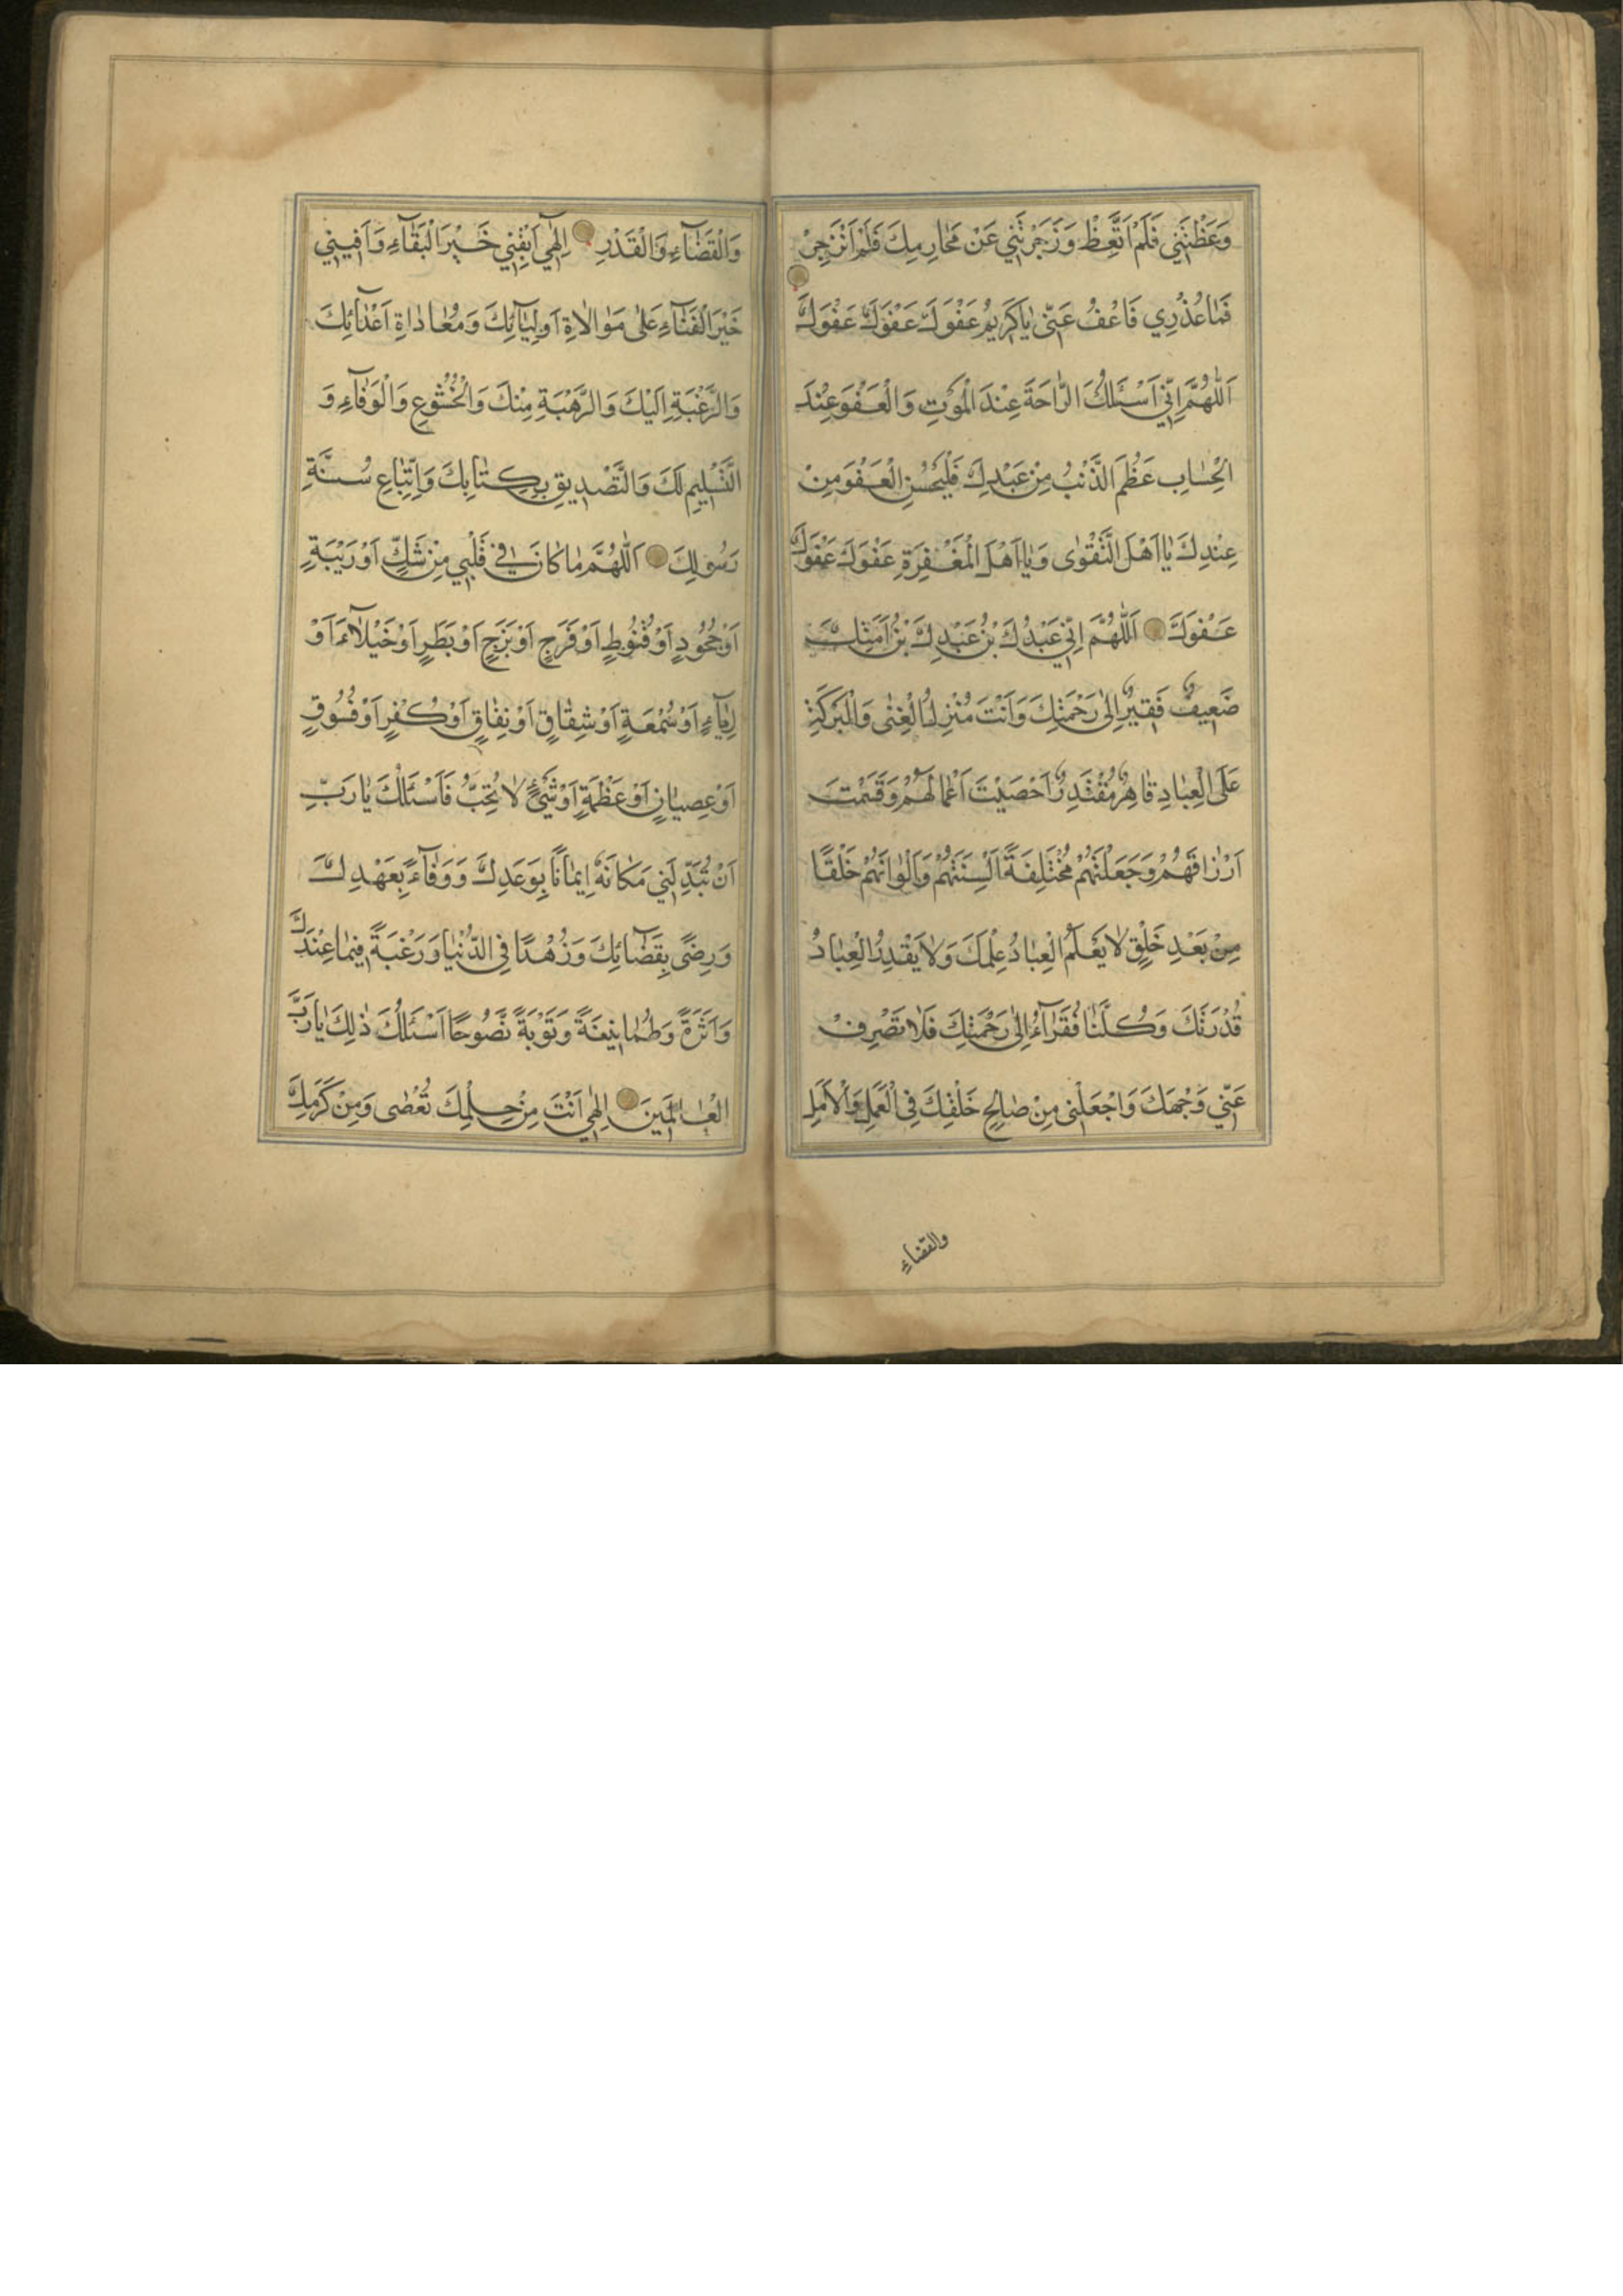 وَعَظْتَنِي فَلَمْ اَتَّعِظْ وَزَجَرْتَنِي عَنْ مَحَارِمِكَ فَلَمْ اَنْزَجِرْ
فَمَا عُذْرِي فَاعْفُ عَنّي يَا كَرِيمُ عَفْوَكَ عَفْوَكَ عَفْوَكَ
اَللّٰهُمَّ اِنّي اَسْئَلُكَ الرَّاحَةَ عِنْدَ الْمَوْتِ وَالْعَفْوَ عِنْدَ
الْحِسَابِ عَظُمَ الذَّنْبُ مِنْ عَبْدِكَ فَلْيَحْسُنِ الْعَفْوَ مِنْ
عِنْدِكَ يَا اَهْلَ التَّقْوٰى وَيَا اَهْلَ الْمَغْفِرَةِ عَفْوَكَ عَفْوَكَ
عَفْوَكَ اَللّٰهُمَّ اِنّي عَبْدُكَ بْنُ عَبْدِكَ بْنُ اَمَتِكَ
ضَعِيفٌ فَقِيرٌ اِلىٰ رَحْمَتِكَ وَاَنْتَ مُنْزِلُ الْغِنٰى وَالْبَرَكَةِ
عَلَى الْعِبَادِ قَاهِرٌ مُقْتَدِرٌ اَحْصَيْتَ اَعْمَالَهُمْ وَقَسَمْتَ
اَرْزَاقَهُمْ وَجَعَلْتَهُمْ مُخْتَلِفَةً اَلْسِنَتُهُمْ وَاَلْوَانُهُمْ خَلْقًا
مِنْ بَعْدِ خَلْقٍ لَا يَعْلَمُ الْعِبَادُ عِلْمَكَ وَلَا يَقْدِرُ الْعِبَادُ
قُدْرَتَكَ وَكُلُّنَا فُقَرَآءُ اِلىٰ رَحْمَتِكَ فَلَا تَصْرِفْ
عَنّي وَجْهَكَ وَاجْعَلْنِي مِنْ صَالِحِ خَلْقِكَ فِي الْعَمَلِ وَالْاَمَلِ
والقضاءِ
وَالْقَضَآءِ وَالْقَدْرِ اِلٰهِي اَبْقِنِي خَيْرَ الْبَقَآءِ وَاَفْنِنِي
خَيْرَ الْفَنَآءِ عَلىٰ مَوَالَاةِ اَوْلِيَآئِكَ وَمُعَادَاةِ اَعْدَآئِكَ
وَالرَّغْبَةِ اِلَيْكَ وَالرَّهْبَةِ مِنْكَ وَالْخُشُوعِ وَالْوَفَآءِ وَ
التَّسْلِيمِ لَكَ وَالتَّصْدِيقِ بِكِتَابِكَ وَاتِّبَاعِ سُنَّةِ
رَسُولِكَ اَللّٰهُمَّ مَا كَانَ فِي قَلْبِي مِنْ شَكٍّ اَوْ رَيْبَةٍ
اَوْ جُحُودٍ اَوْ قُنُوطٍ اَوْ فَرَحٍ اَوْ بَزَحٍ اَوْ بَطَرٍ اَوْ خَيْلَآءَ اَوْ
رِيَآءٍ اَوْ سُمْعَةٍ اَوْ شِقَاقٍ اَوْ نِفَاقٍ اَوْ كُفْرٍ اَوْ فُسُوقٍ
اَوْ عِصْيَانٍ اَوْ عَظْمَةٍ اَوْ شَيْءٍ لَا تُحِبُّ فَاَسْئَلُكَ يَا رَبِّ
اَنْ تُبَدِّلَنِي مَكَانَهُ اِيمَانًا بِوَعَدِكَ وَوَفَآءً بِعَهْدِكَ
وَرِضًى بِقَضَآئِكَ وَزُهْدًا فِي الدُّنْيَا وَرَغْبَةً فِيمَا عِنْدَكَ
وَاَثَرَةً وَطُمَانِينَةً وَتَوْبَةً نَصُوحًا اَسْئَلُكَ ذٰلِكَ يَا رَبَّ
الْعَالَمِينَ اِلٰهِي اَنْتَ مِنْ حِلْمِكَ تُعْصٰى وَمِنْ كَرَمِكَ